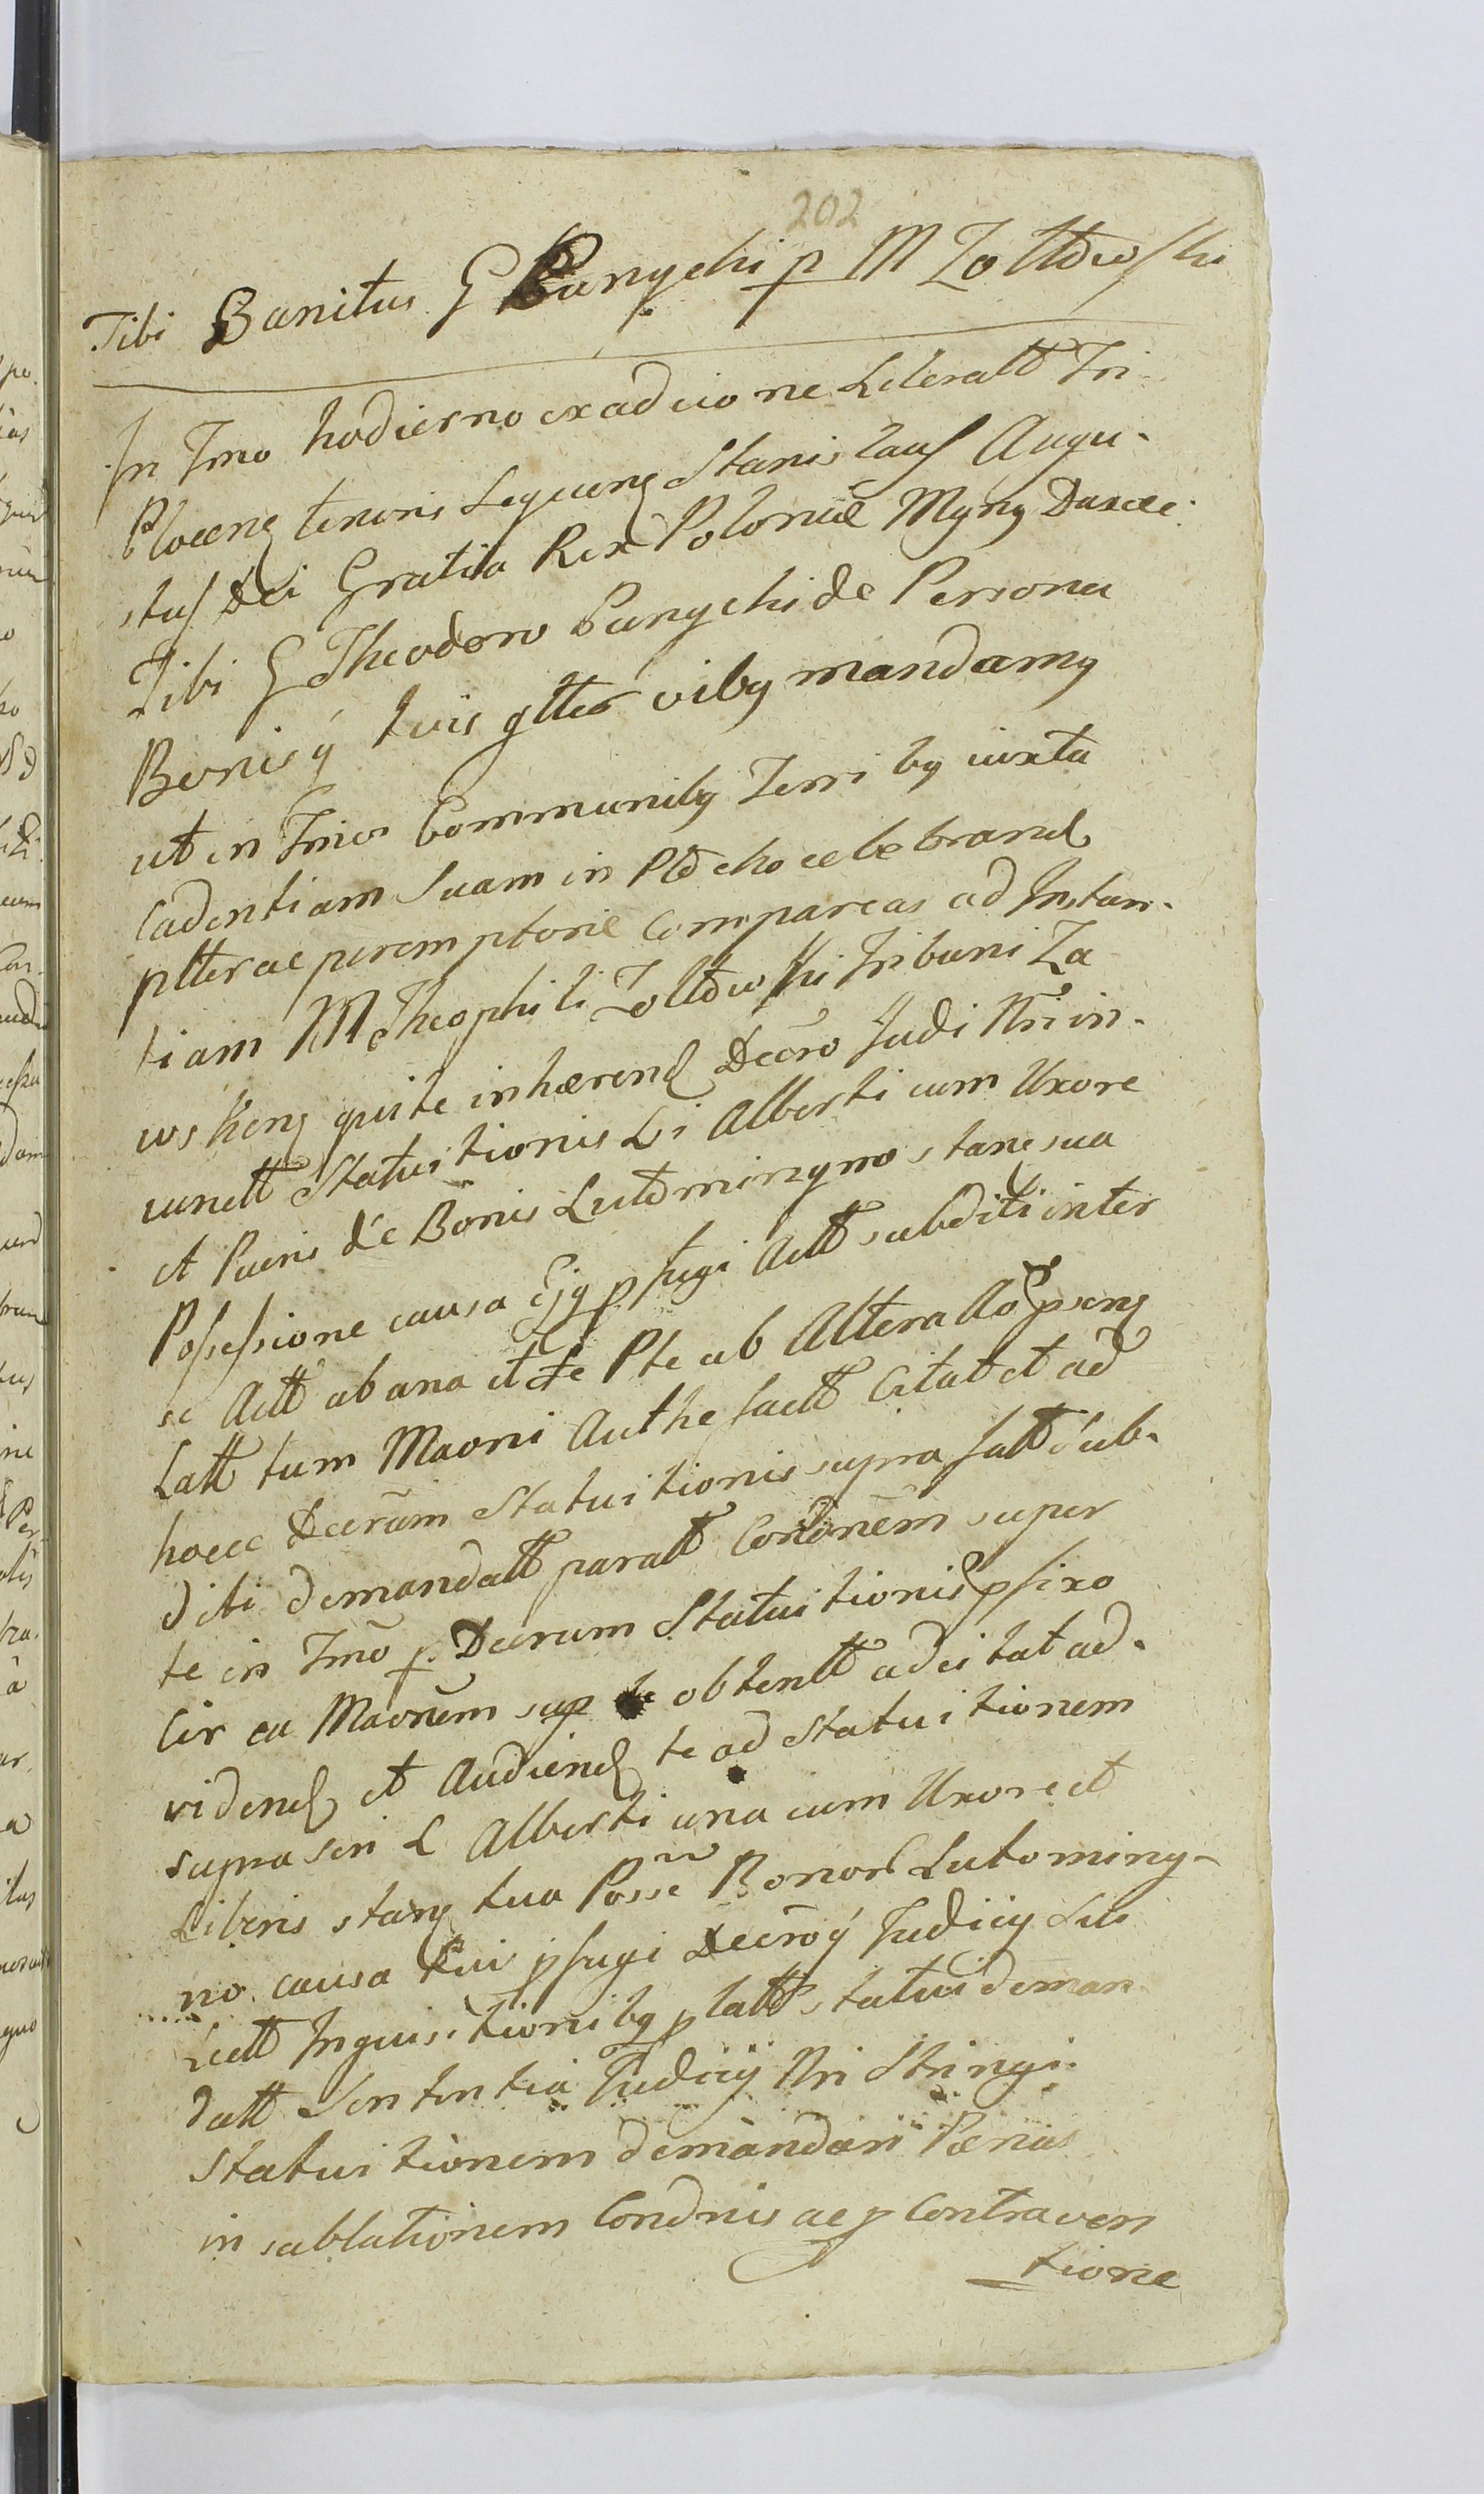 202
Tibi Banitus G Bunychi p M Zołłdowski
In Tmo hodierno ex adcione Literatt Tri
Ploceng tenoris Sequeng Stanislaus Augu-
stus Dei Gratia Rex Poloniæ Mgng Dux etc:
Tibi G Theodoro Bunychi de Persona
Bonisq tuis gtter viby mandamg
ut in Tmis Communiby Terri by iuxta
Cadentiam Suam in Płocko celebrand
ptter ac peremptorie Compareas ad Instan-
tiam M Theophili Zołłdowski Tribuni Za
wskeng qui te inhærend Decro Judi Nri in-
Statuitionis L Alberti cum Uxore
et Pueris de Bonis Lutominyno stane sua
Possessione causa Ejg pfugi Actt subditi inter
se Actt ab una et te Pte ab Altera
Latt tum Maoni Authe factt Citat et ad
hocce Decrum Statuitionis supra fatt sub-
diti demandatt paratt Condnem super
te in Tmo p Decrum Statuitionis pfixo
Cir ca Maonem sup te obtentt adcitat ad-
vidend et Audiend te ad Statuitionem
supra scri L Alberti una cum Uxore et
Liberis stang tua Posse Bonor Lutominy-
no. causa sui pfugi Decroq Judicy
Inquisitioniby platt statui deman
datt Sententia Judicij Nri Stringi
Statuitionem demandari Pænas
in sublationem Condnis ac p Contraven
tione